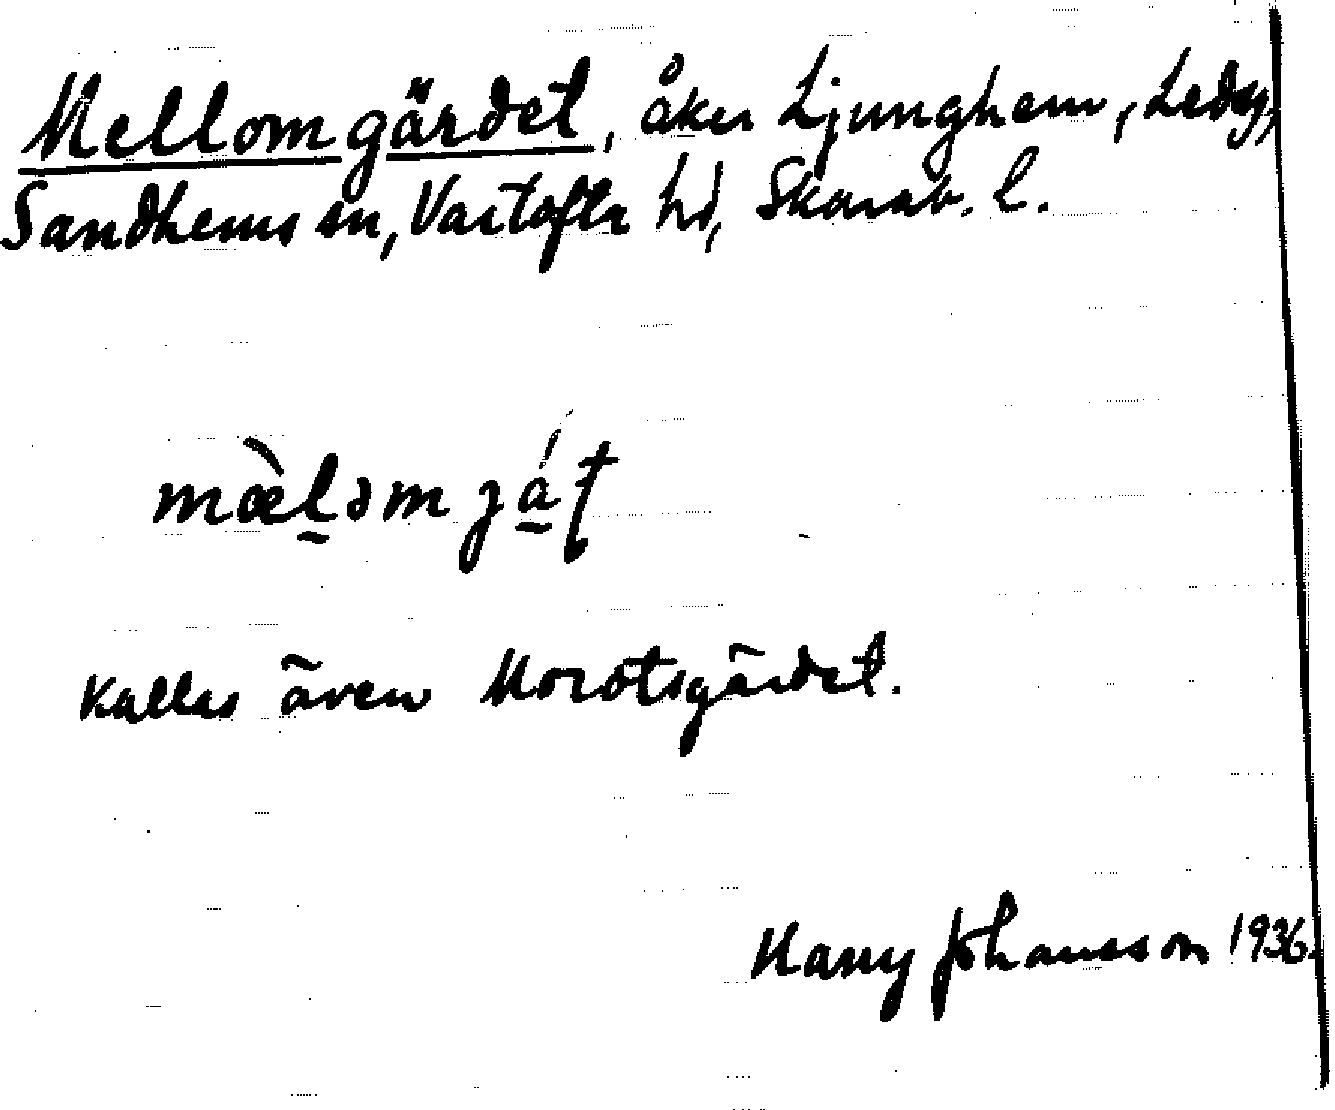 Mellomgärdet, åker Ljunghem, Ledsg,
Sandhems sn, Vartofta hd, Skarab. l.
mæ̀ləm já̱t
Kallas även Morotsgärdet.
Harry Johansson 1936.